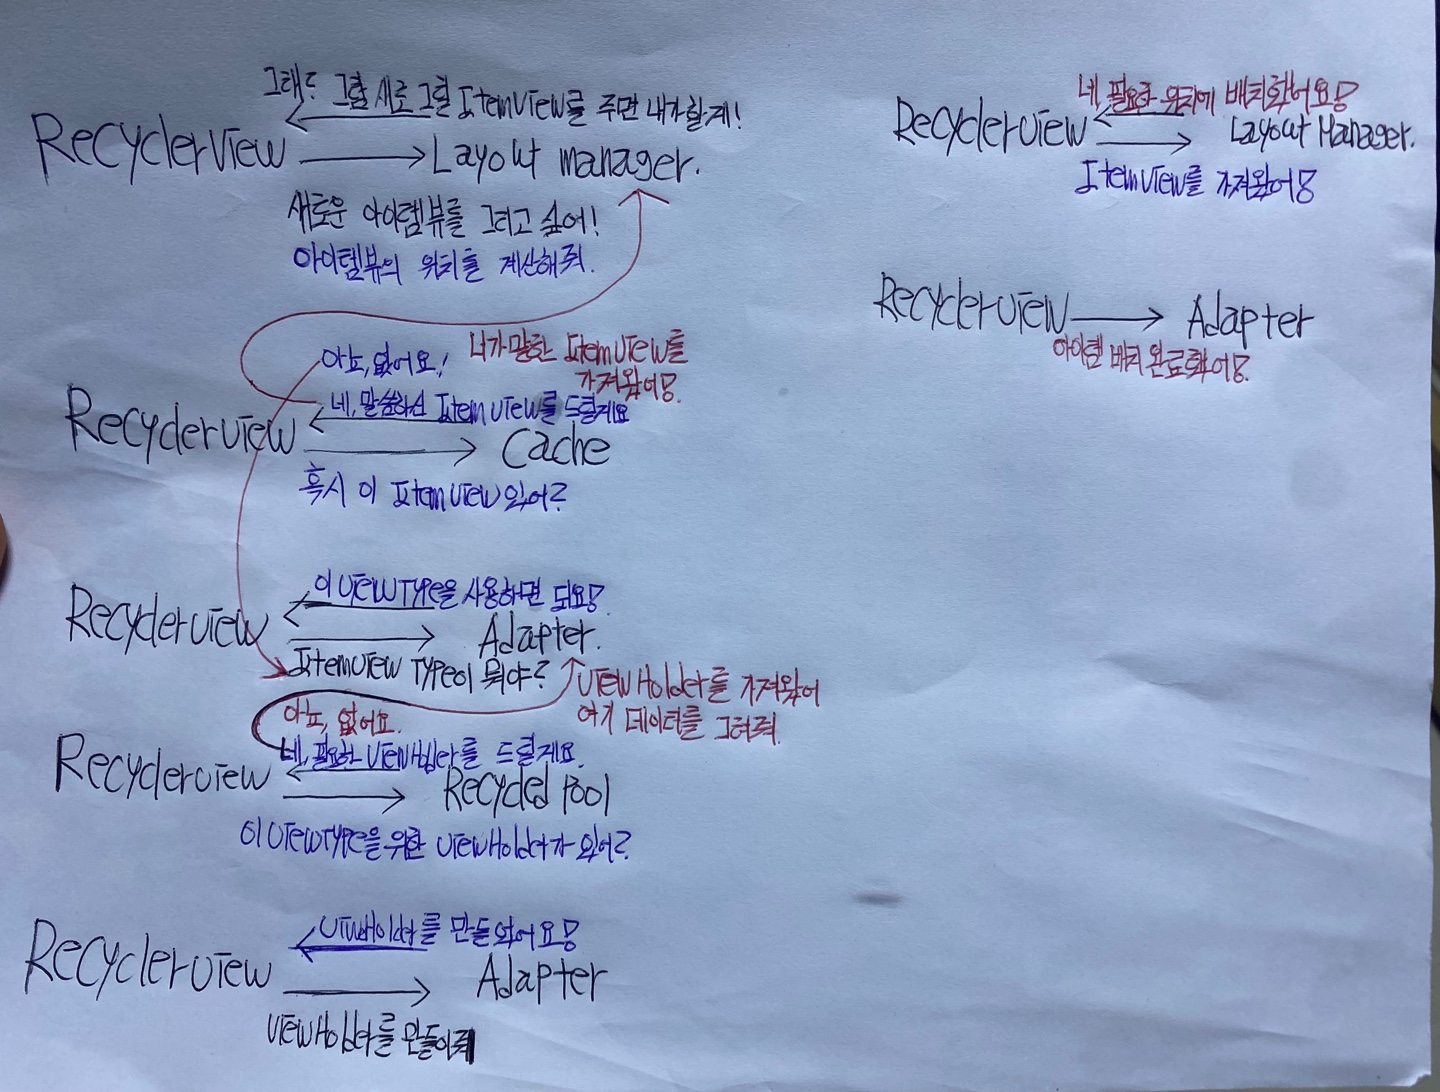 그래? 그럼 새로 그릴 ItemView를 주면 내가할게!
RecyclerView
Layout manager.
새로운 아이템뷰를 그리고 싶어!
아이템뷰의 위치를 계산해줘.
아뇨, 없어요!
너가 말한 ItemView를
가져왔어!
네, 말씀하신 ItemView를 드릴게요
Recyclerview
Cache
혹시 이 ItemView 있어?
이 ViewType을 사용하면 되요!
Recyclerview
Adapter.
ItemView Type이 뭐야?
ViewHolder를 가져왔어
여기 데이터를 그려줘.
아뇨, 없어요.
네, 필요한 ViewHolder를 드릴게요.
Recyclerview
Recycled Pool
이 ViewType을 위한 ViewHolder가 있어?
ViewHolder를 만들었어요!
Recyclerview
Adapter
ViewHolder를 만들어줘
네, 필요한 위치에 배치했어요!
Recyclerview
Layout Manager.
ItemView를 가져왔어!
Recyclerview
Adapter
아이템 배치 완료됐어!